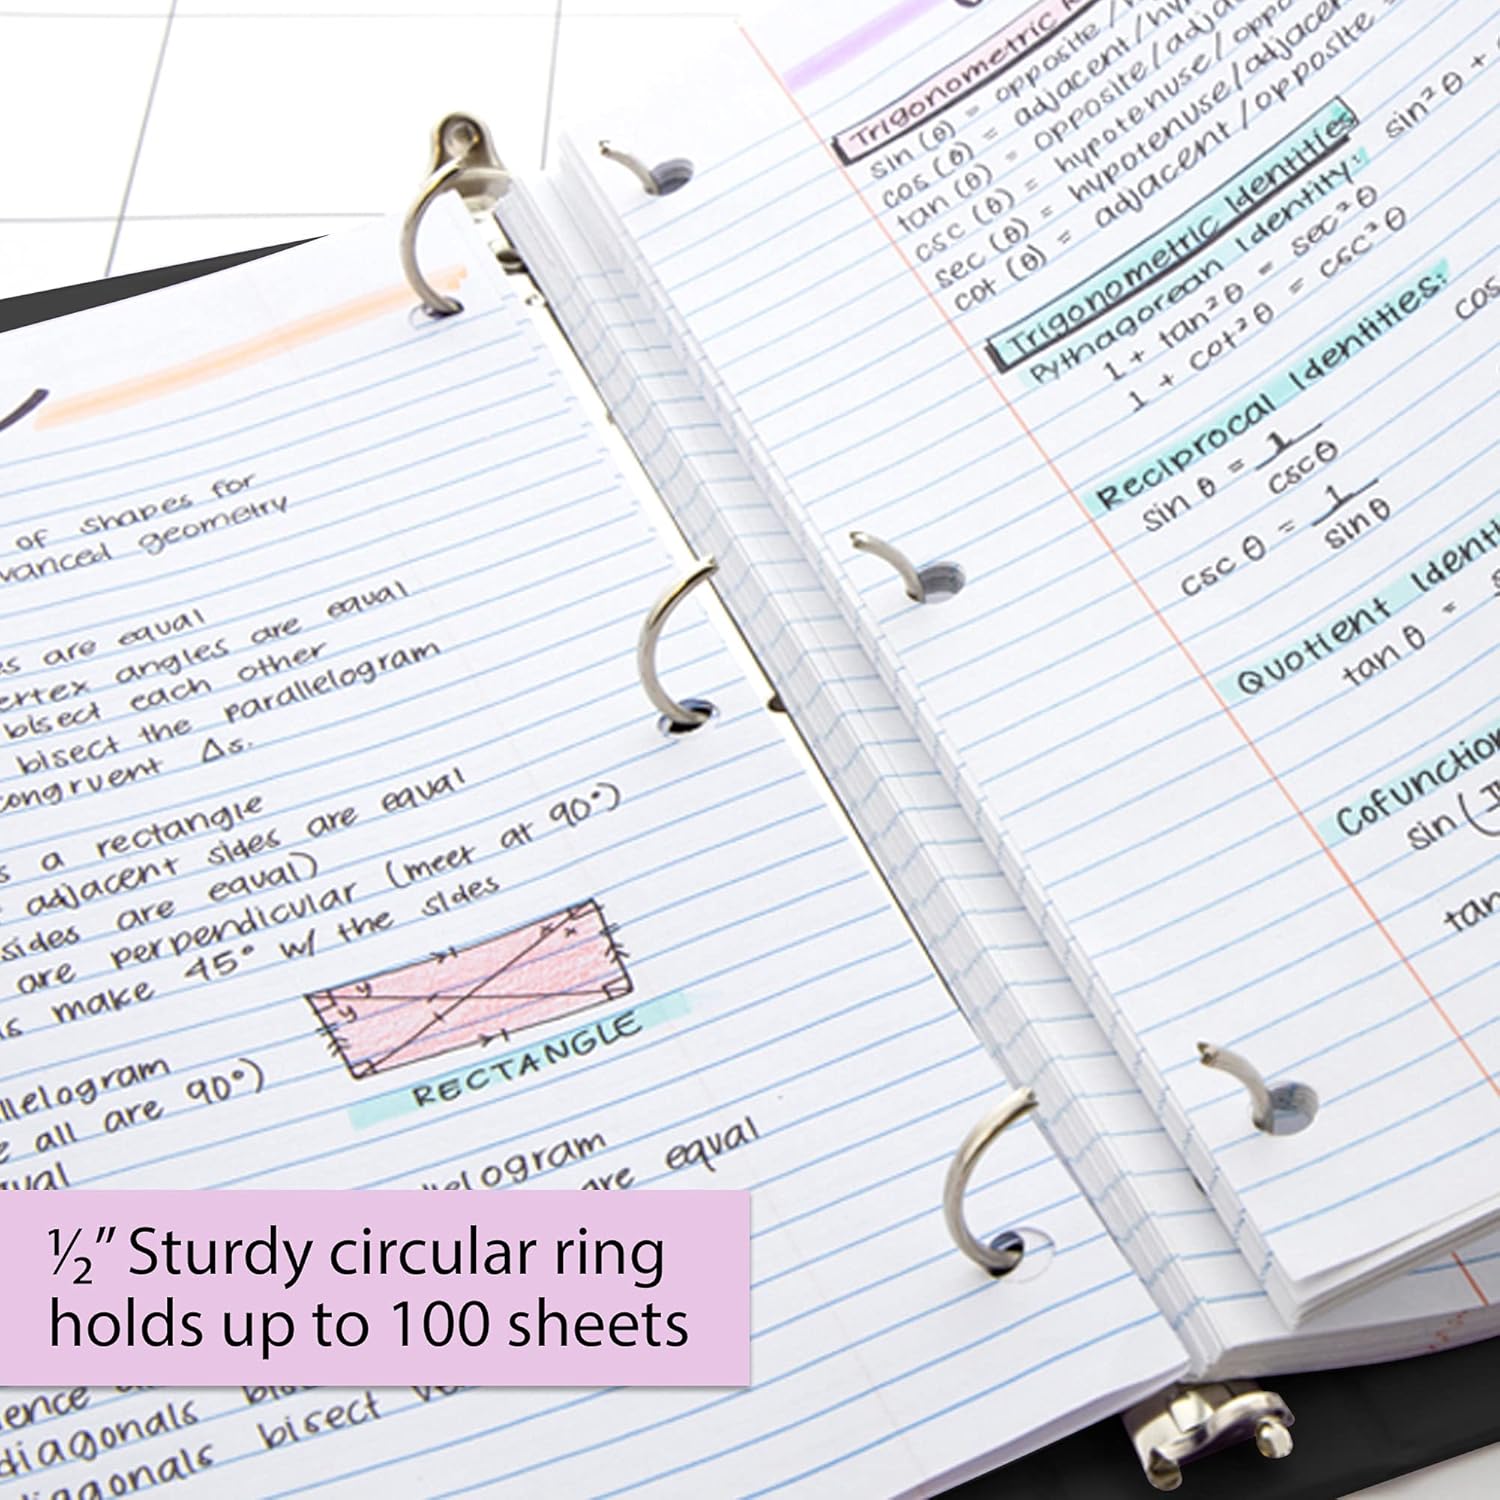 of shapes for
geometry
are equal
angles are equal
bisect each other
bisect the parallelogram
congruent Δs.
a rectangle
adjacent sides are equal
sides are equal)
are perpendicular (meet at 90°)
make 45° w/ the sides
y
y
x
x
RECTANGLE
all are 90°)
are equal
diagonals
bisect
½” Sturdy circular ring
holds up to 100 sheets
Trigonometric
sin (θ) = opposite /
cos (θ) = adjacent /
tan (θ) = opposite /
csc (θ) = hypotenuse /
sec (θ) = hypotenuse/adjacent
cot (θ) = adjacent /opposite
Trigonometric Identities
Pythagorean Identity: sin²θ +
1 + tan²θ = sec²θ
1 + cot²θ = csc²θ
Reciprocal Identities: cos
sin θ = 1/cscθ
csc θ = 1/sinθ
Quotient
tan θ =
Cofunction
sin (
tan